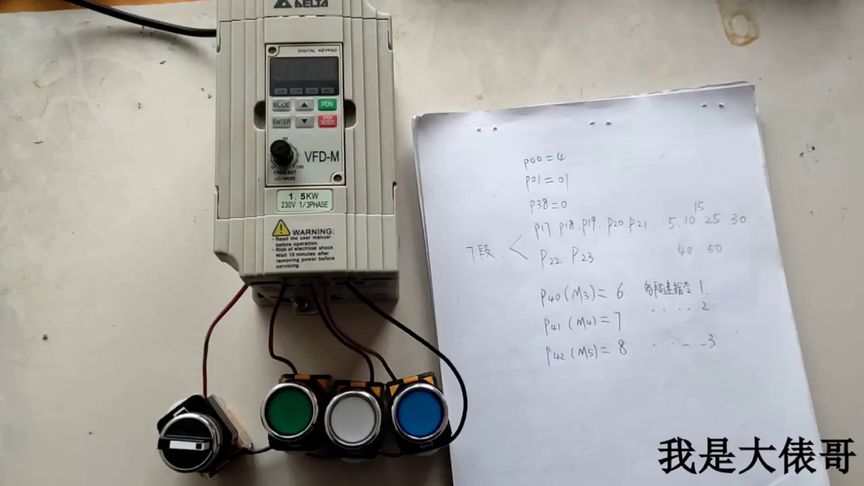 DELTA
DIGITAL KEYPAD
MODE
RUN
ENTER
STOP
RESET
VFD-M
1.5KW
230V 1/3PHASE
WARNING:
- Read the user manual
before operation.
- Risk of electrical shock.
Wait 10 minutes after
removing power before
servicing.
P00=4.
P01=01
P38=0
15
P17 P18.P19. P20 P21 5.10 25 30
7段.
P22 P23 40.50
P40(M3)=6 1.
P41(M4)=7 . . . . 2
P42(M5)=8 3
我是大俵哥